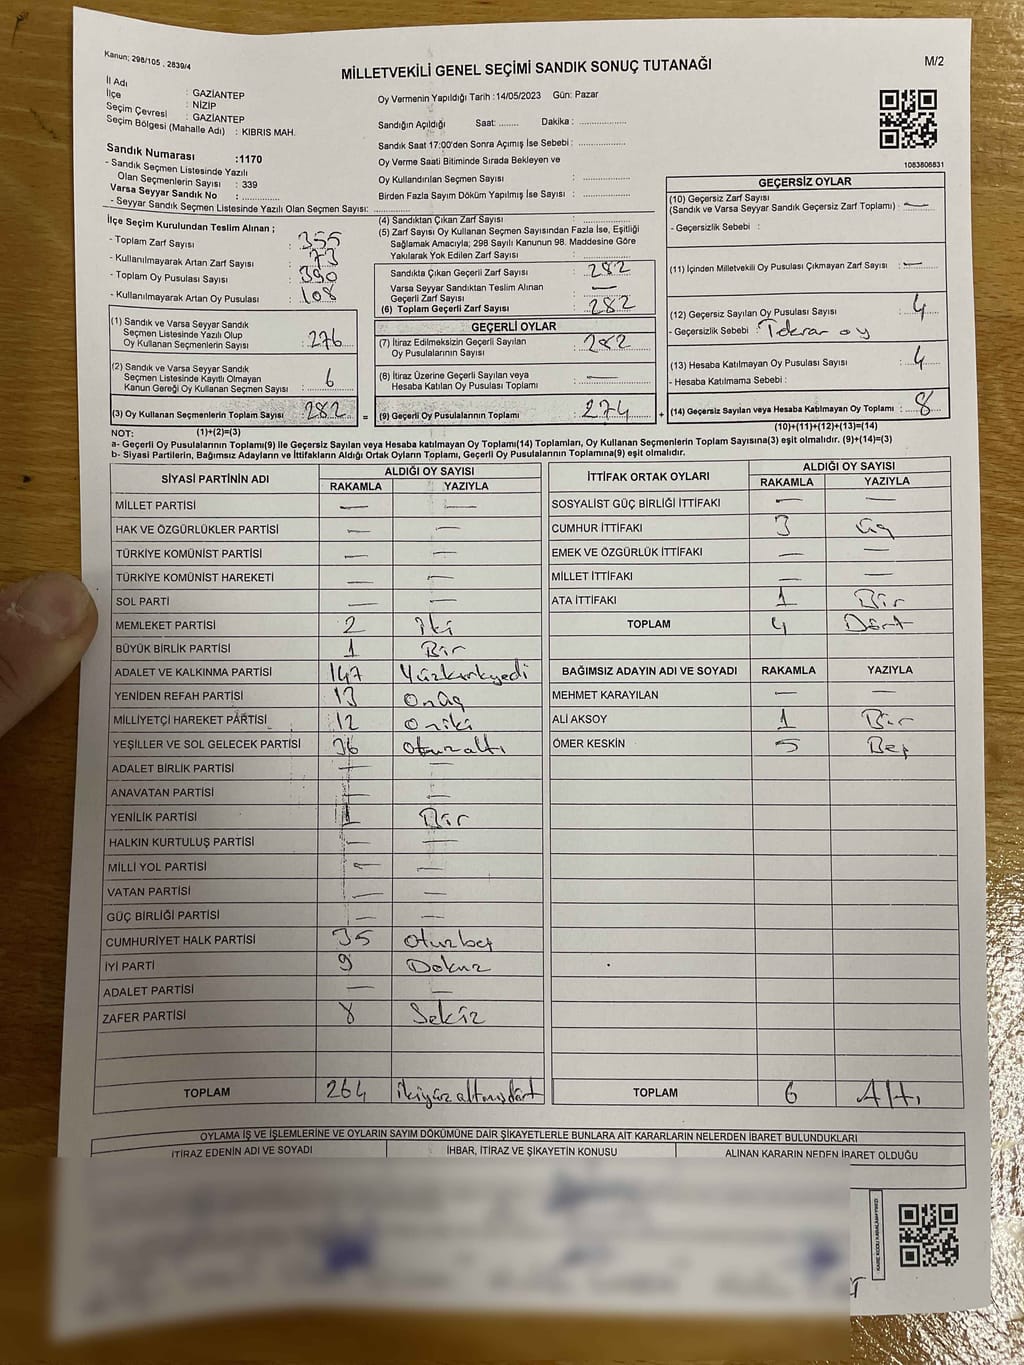 Kanun; 298/105 , 2839/4
MİLLETVEKİLİ GENEL SEÇİMİ SANDIK SONUÇ TUTANAĞI
M/2
İl Adı : GAZİANTEP
İlçe : NİZİP
Seçim Çevresi : GAZİANTEP
Seçim Bölgesi (Mahalle Adı) : KIBRIS MAH.
Sandık Numarası :1170
- Sandık Seçmen Listesinde Yazılı
Olan Seçmenlerin Sayısı : 339
Varsa Seyyar Sandık No : ..............
- Seyyar Sandık Seçmen Listesinde Yazılı Olan Seçmen Sayısı: ..............
Oy Vermenin Yapıldığı Tarih :14/05/2023 Gün: Pazar
Sandığın Açıldığı Saat: ........ Dakika : ..............
Sandık Saat 17:00'den Sonra Açımış İse Sebebi : ..............
Oy Verme Saati Bitiminde Sırada Bekleyen ve
Oy Kullandırılan Seçmen Sayısı : ..............
Birden Fazla Sayım Döküm Yapılmış İse Sayısı : ..............
1083806831
İlçe Seçim Kurulundan Teslim Alınan ;
- Toplam Zarf Sayısı : 355
- Kullanılmayarak Artan Zarf Sayısı : 73
- Toplam Oy Pusulası Sayısı : 390
- Kullanılmayarak Artan Oy Pusulası : 108
(1) Sandık ve Varsa Seyyar Sandık
Seçmen Listesinde Yazılı Olup
Oy Kullanan Seçmenlerin Sayısı : 276
(2) Sandık ve Varsa Seyyar Sandık
Seçmen Listesinde Kayıtlı Olmayan
Kanun Gereği Oy Kullanan Seçmen Sayısı : 6
(3) Oy Kullanan Seçmenlerin Toplam Sayısı : 282 =
(1)+(2)=(3)
(4) Sandıktan Çıkan Zarf Sayısı : ..............
(5) Zarf Sayısı Oy Kullanan Seçmen Sayısından Fazla İse, Eşitliği
Sağlamak Amacıyla; 298 Sayılı Kanunun 98. Maddesine Göre
Yakılarak Yok Edilen Zarf Sayısı : ..............
Sandıkta Çıkan Geçerli Zarf Sayısı : 282
Varsa Seyyar Sandıktan Teslim Alınan
Geçerli Zarf Sayısı : —
(6) Toplam Geçerli Zarf Sayısı : 282
GEÇERLİ OYLAR
(7) İtiraz Edilmeksizin Geçerli Sayılan
Oy Pusulalarının Sayısı : 282
(8) İtiraz Üzerine Geçerli Sayılan veya
Hesaba Katılan Oy Pusulası Toplamı : —
(9) Geçerli Oy Pusulalarının Toplamı : 274 +
GEÇERSİZ OYLAR
(10) Geçersiz Zarf Sayısı
(Sandık ve Varsa Seyyar Sandık Geçersiz Zarf Toplamı) : —
- Geçersizlik Sebebi :
(11) İçinden Milletvekili Oy Pusulası Çıkmayan Zarf Sayısı : —
(12) Geçersiz Sayılan Oy Pusulası Sayısı : 4
- Geçersizlik Sebebi : Tekrar oy
(13) Hesaba Katılmayan Oy Pusulası Sayısı : 4
- Hesaba Katılmama Sebebi :
(14) Geçersiz Sayılan veya Hesaba Katılmayan Oy Toplamı : 8
(10)+(11)+(12)+(13)=(14)
NOT:
a- Geçerli Oy Pusulalarının Toplamı(9) ile Geçersiz Sayılan veya Hesaba katılmayan Oy Toplamı(14) Toplamları, Oy Kullanan Seçmenlerin Toplam Sayısına(3) eşit olmalıdır. (9)+(14)=(3)
b- Siyasi Partilerin, Bağımsız Adayların ve İttifakların Aldığı Ortak Oyların Toplamı, Geçerli Oy Pusulalarının Toplamına(9) eşit olmalıdır.
SİYASİ PARTİNİN ADI ALDIĞI OY SAYISI
RAKAMLA YAZIYLA
MİLLET PARTİSİ — —
HAK VE ÖZGÜRLÜKLER PARTİSİ — —
TÜRKİYE KOMÜNİST PARTİSİ — —
TÜRKİYE KOMÜNİST HAREKETİ — —
SOL PARTİ — —
MEMLEKET PARTİSİ 2 iki
BÜYÜK BİRLİK PARTİSİ 1 Bir
ADALET VE KALKINMA PARTİSİ 147 Yüzkırkyedi
YENİDEN REFAH PARTİSİ 13 onüç
MİLLİYETÇİ HAREKET PARTİSİ 12 oniki
YEŞİLLER VE SOL GELECEK PARTİSİ 36 otuzaltı
ADALET BİRLİK PARTİSİ — —
ANAVATAN PARTİSİ — —
YENİLİK PARTİSİ 1 Bir
HALKIN KURTULUŞ PARTİSİ — —
MİLLİ YOL PARTİSİ — —
VATAN PARTİSİ — —
GÜÇ BİRLİĞİ PARTİSİ — —
CUMHURİYET HALK PARTİSİ 35 otuzbeş
İYİ PARTİ 9 Dokuz
ADALET PARTİSİ — —
ZAFER PARTİSİ 8 Sekiz
TOPLAM 264 ikiyüzaltmışdört
İTTİFAK ORTAK OYLARI ALDIĞI OY SAYISI
RAKAMLA YAZIYLA
SOSYALİST GÜÇ BİRLİĞİ İTTİFAKI — —
CUMHUR İTTİFAKI 3 üç
EMEK VE ÖZGÜRLÜK İTTİFAKI — —
MİLLET İTTİFAKI — —
ATA İTTİFAKI 1 Bir
TOPLAM 4 Dört
BAĞIMSIZ ADAYIN ADI VE SOYADI RAKAMLA YAZIYLA
MEHMET KARAYILAN — —
ALİ AKSOY 1 Bir
ÖMER KESKİN 5 Beş
TOPLAM 6 Altı
OYLAMA İŞ VE İŞLEMLERİNE VE OYLARIN SAYIM DÖKÜMÜNE DAİR ŞİKAYETLERLE BUNLARA AİT KARARLARIN NELERDEN İBARET BULUNDUKLARI
İTİRAZ EDENİN ADI VE SOYADI İHBAR, İTİRAZ VE ŞİKAYETİN KONUSU ALINAN KARARIN NEDEN İBARET OLDUĞU